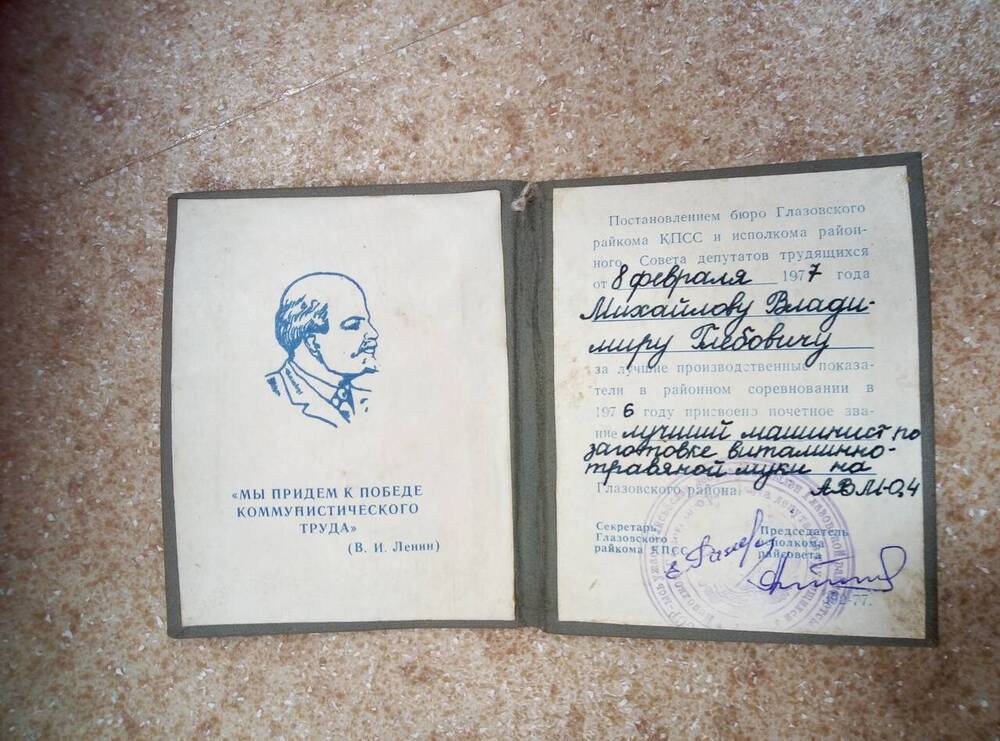 «МЫ ПРИДЕМ К ПОБЕДЕ
КОММУНИСТИЧЕСКОГО
ТРУДА»
(В. И. Ленин)
Постановлением бюро Глазовского
райкома КПСС и исполкома район-
ного Совета депутатов трудящихся
от 8 февраля 1977 года
Михайлову Влади-
миру Глебовичу
за лучшие производственные показа-
тели в районном соревновании в
1976 году присвоено почетное зва-
ние лучший машинист по
заготовке витаминно-
травяной муки на
Глазовского района АВМ-0,4
Секретарь
Глазовского
райкома КПСС
Председатель
исполкома
райсовета